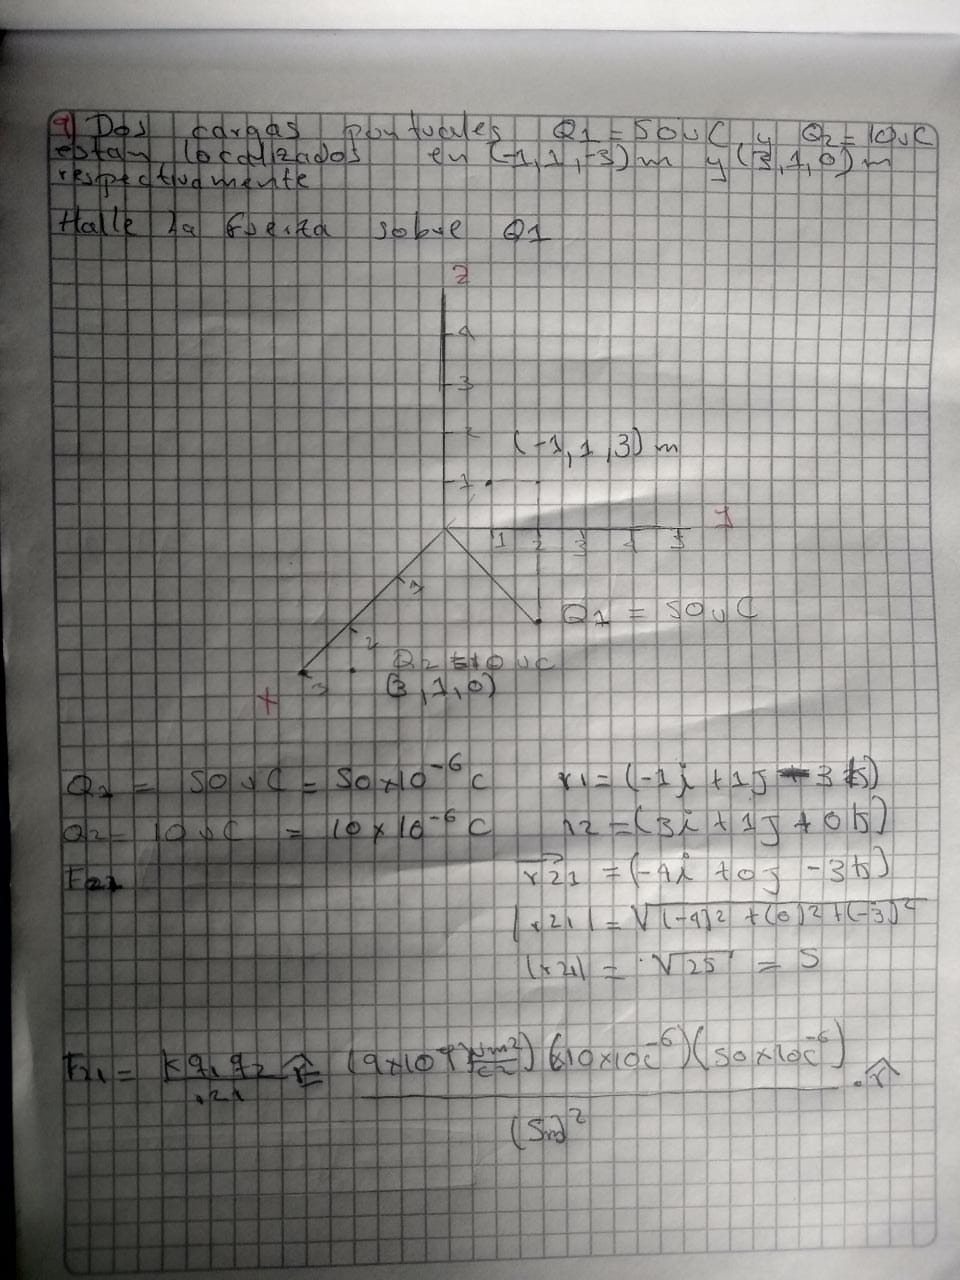 9) Dos cargas puntuales Q1 = 50uC y Q2 = 10uC
estan localizados en (-1,1,-3)m y (3,1,0)m
respectivamente
Halle la fuerza sobre Q1
Z
4
3
2
(-1,1,3)m
1
Y
1 2 3 4 5
1
Q1 = 50uC
2
Q2 = 10uC
3
(3,1,0)
X
Q1 = 50uC = 50x10^-6 C r1 = (-1i + 1j - 3k)
Q2 = 10uC = 10x10^-6 C r2 = (3i + 1j + 0k)
F21 r21 = (-4i + 0j - 3k)
|r21| = √(-4)² + (0)² + (-3)²
|r21| = √25 = 5
F21 = K q1 q2 r̂ = (9x10^9 Nm²/C²) (10x10^-6 C) (50x10^-6 C) . r̂
r21
(5m)²